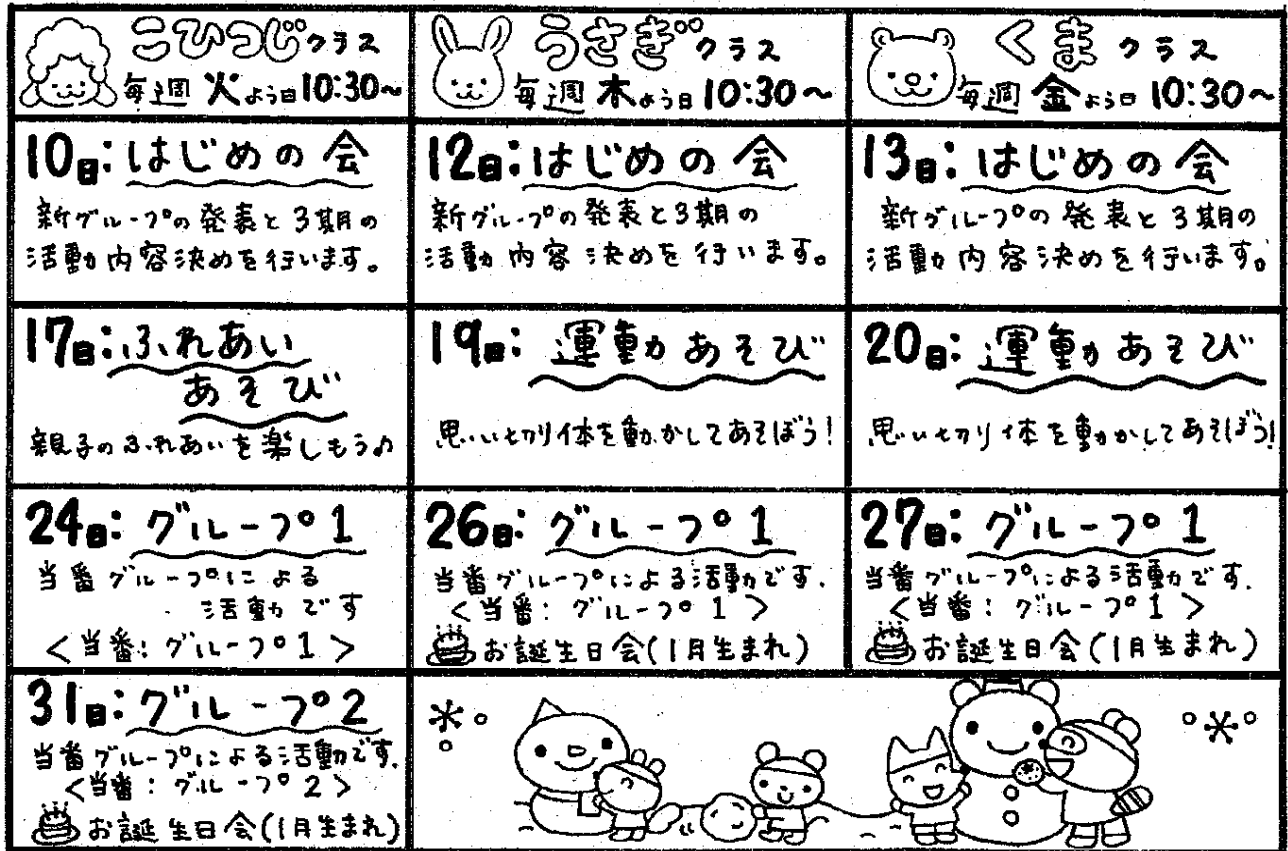 こひつじクラス
毎週火よう日10:30~
うさぎクラス
毎週木よう日10:30~
くまクラス
毎週金よう日10:30~
10日:はじめの会
新グループの発表と3期の
活動内容決めを行います。
12日:はじめの会
新グループの発表と3期の
活動内容決めを行います。
13日:はじめの会
新グループの発表と3期の
活動内容決めを行います。
17日:ふれあい
あそび
親子のふれあいを楽しもう♪
19日:運動あそび
思い切り体を動かしてあそぼう!
20日:運動あそび
思い切り体を動かしてあそぼう!
24日:グループ1
当番グループによる
活動です
<当番:グループ1>
26日:グループ1
当番グループによる活動です.
<当番:グループ1>
お誕生日会(1月生まれ)
27日:グループ1
当番グループによる活動です.
<当番:グループ1>
お誕生日会(1月生まれ)
31日:グループ2
当番グループによる活動です.
<当番:グループ2>
お誕生日会(1月生まれ)